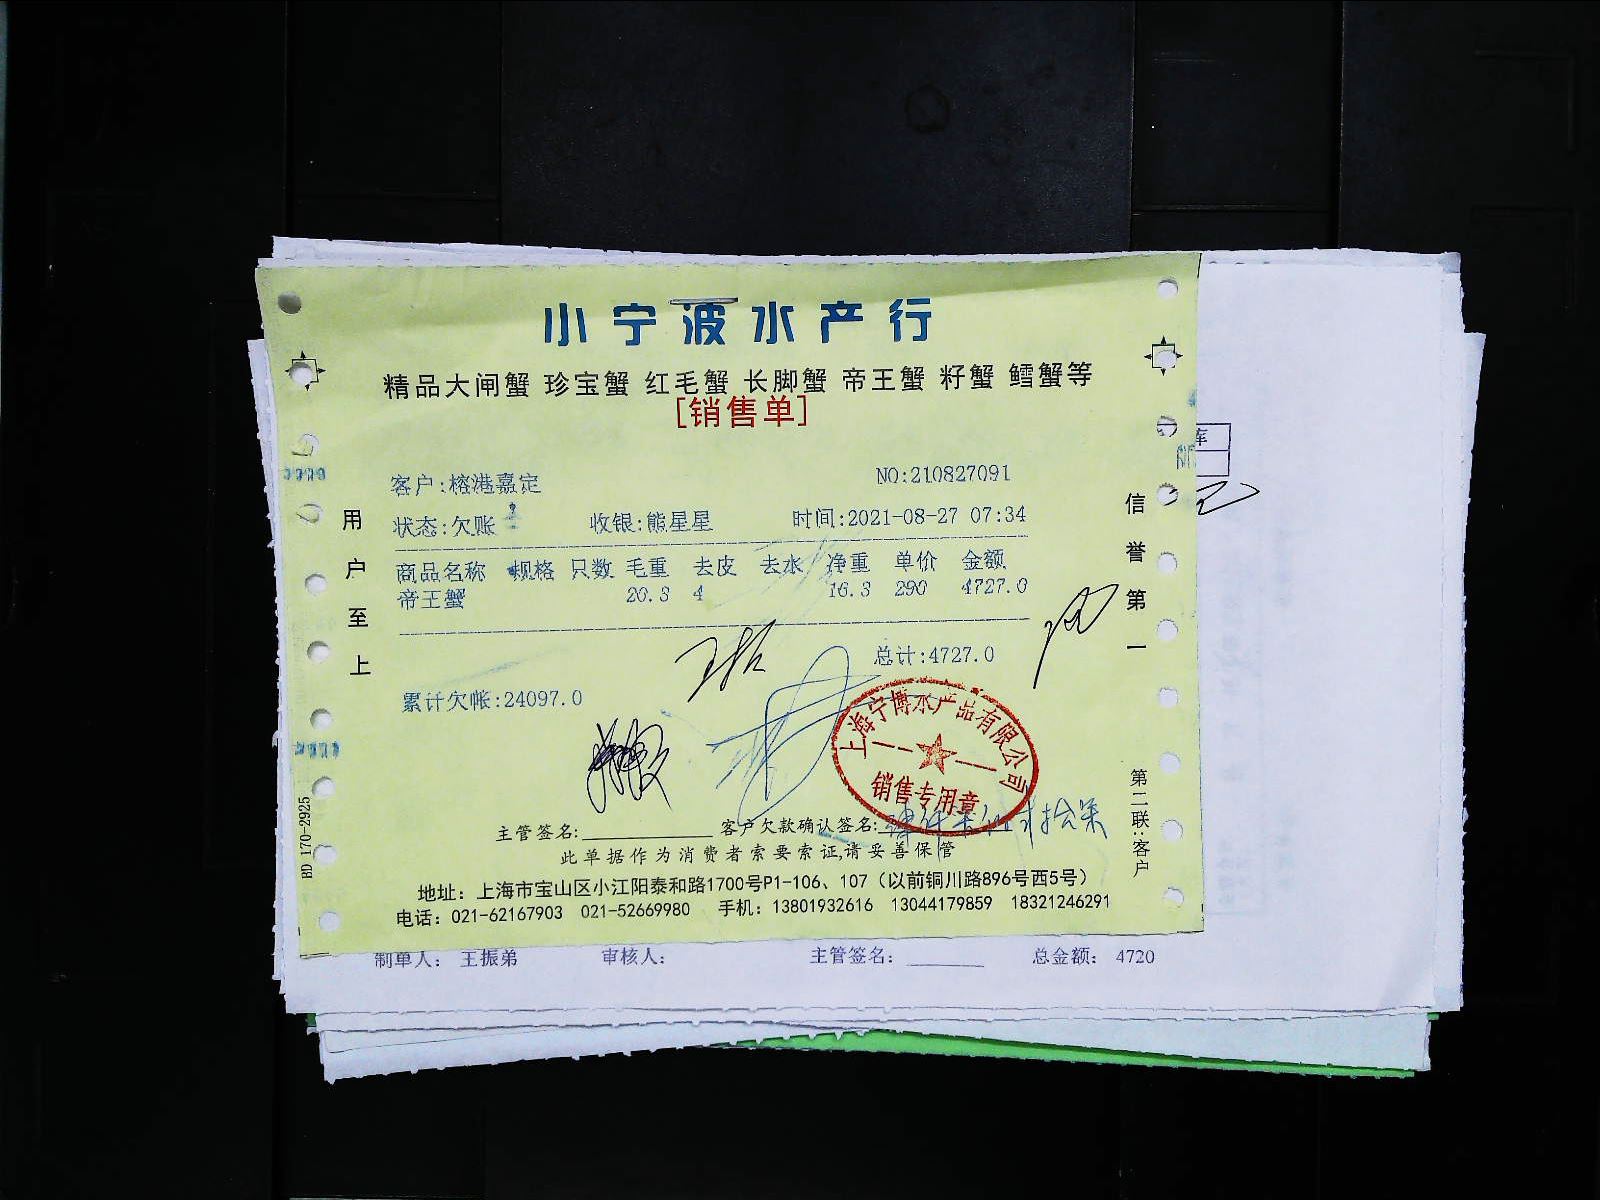 小宁波水产行
精品大闸蟹 珍宝蟹 红毛蟹 长脚蟹 帝王蟹 籽蟹 鳕蟹等
[销售单]
客户:榕港嘉定
NO:210827091
状态:欠账
收银:熊星星
时间:2021-08-27 07:34
商品名称 规格 只数 毛重 去皮 去水 净重 单价 金额
帝王蟹 20.3 4 16.3 290 4727.0
总计:4727.0
累计欠帐:24097.0
用户至上
信誉第一
上海宁博水产品有限公司
销售专用章
主管签名:
客户欠款确认签名:
此单据作为消费者索要索证,请妥善保管
地址：上海市宝山区小江阳泰和路1700号P1-106、107（以前铜川路896号西5号）
电话：021-62167903 021-52669980 手机：13801932616 13044179859 18321246291
第二联:客户
HD 170-2925
库
制单人： 王振弟 审核人: 主管签名： 总金额： 4720